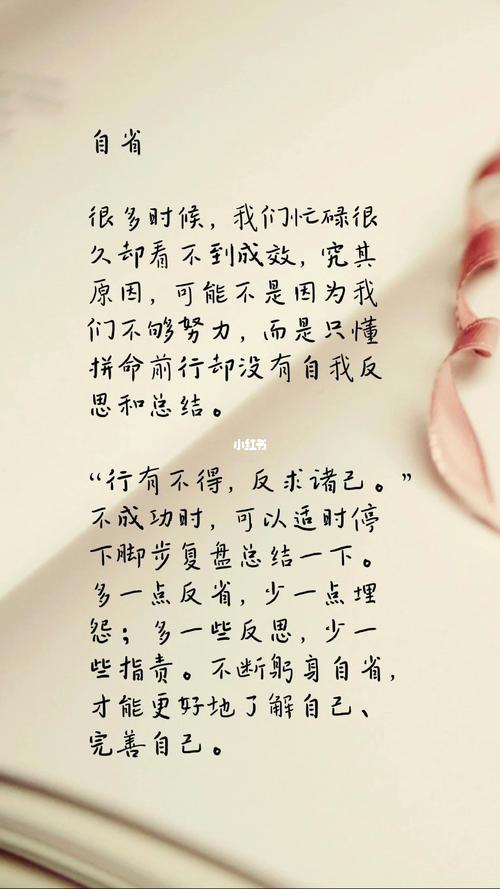 自省
很多时候，我们忙碌很
久却看不到成效，究其
原因，可能不是因为我
们不够努力，而是只懂
拼命前行却没有自我反
思和总结。
小红书
“行有不得，反求诸己。”
不成功时，可以适时停
下脚步复盘总结一下。
多一点反省，少一点埋
怨；多一些反思，少一
些指责。不断躬身自省，
才能更好地了解自己、
完善自己。